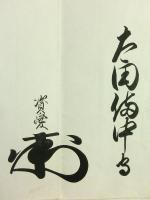 太田備中守
資愛